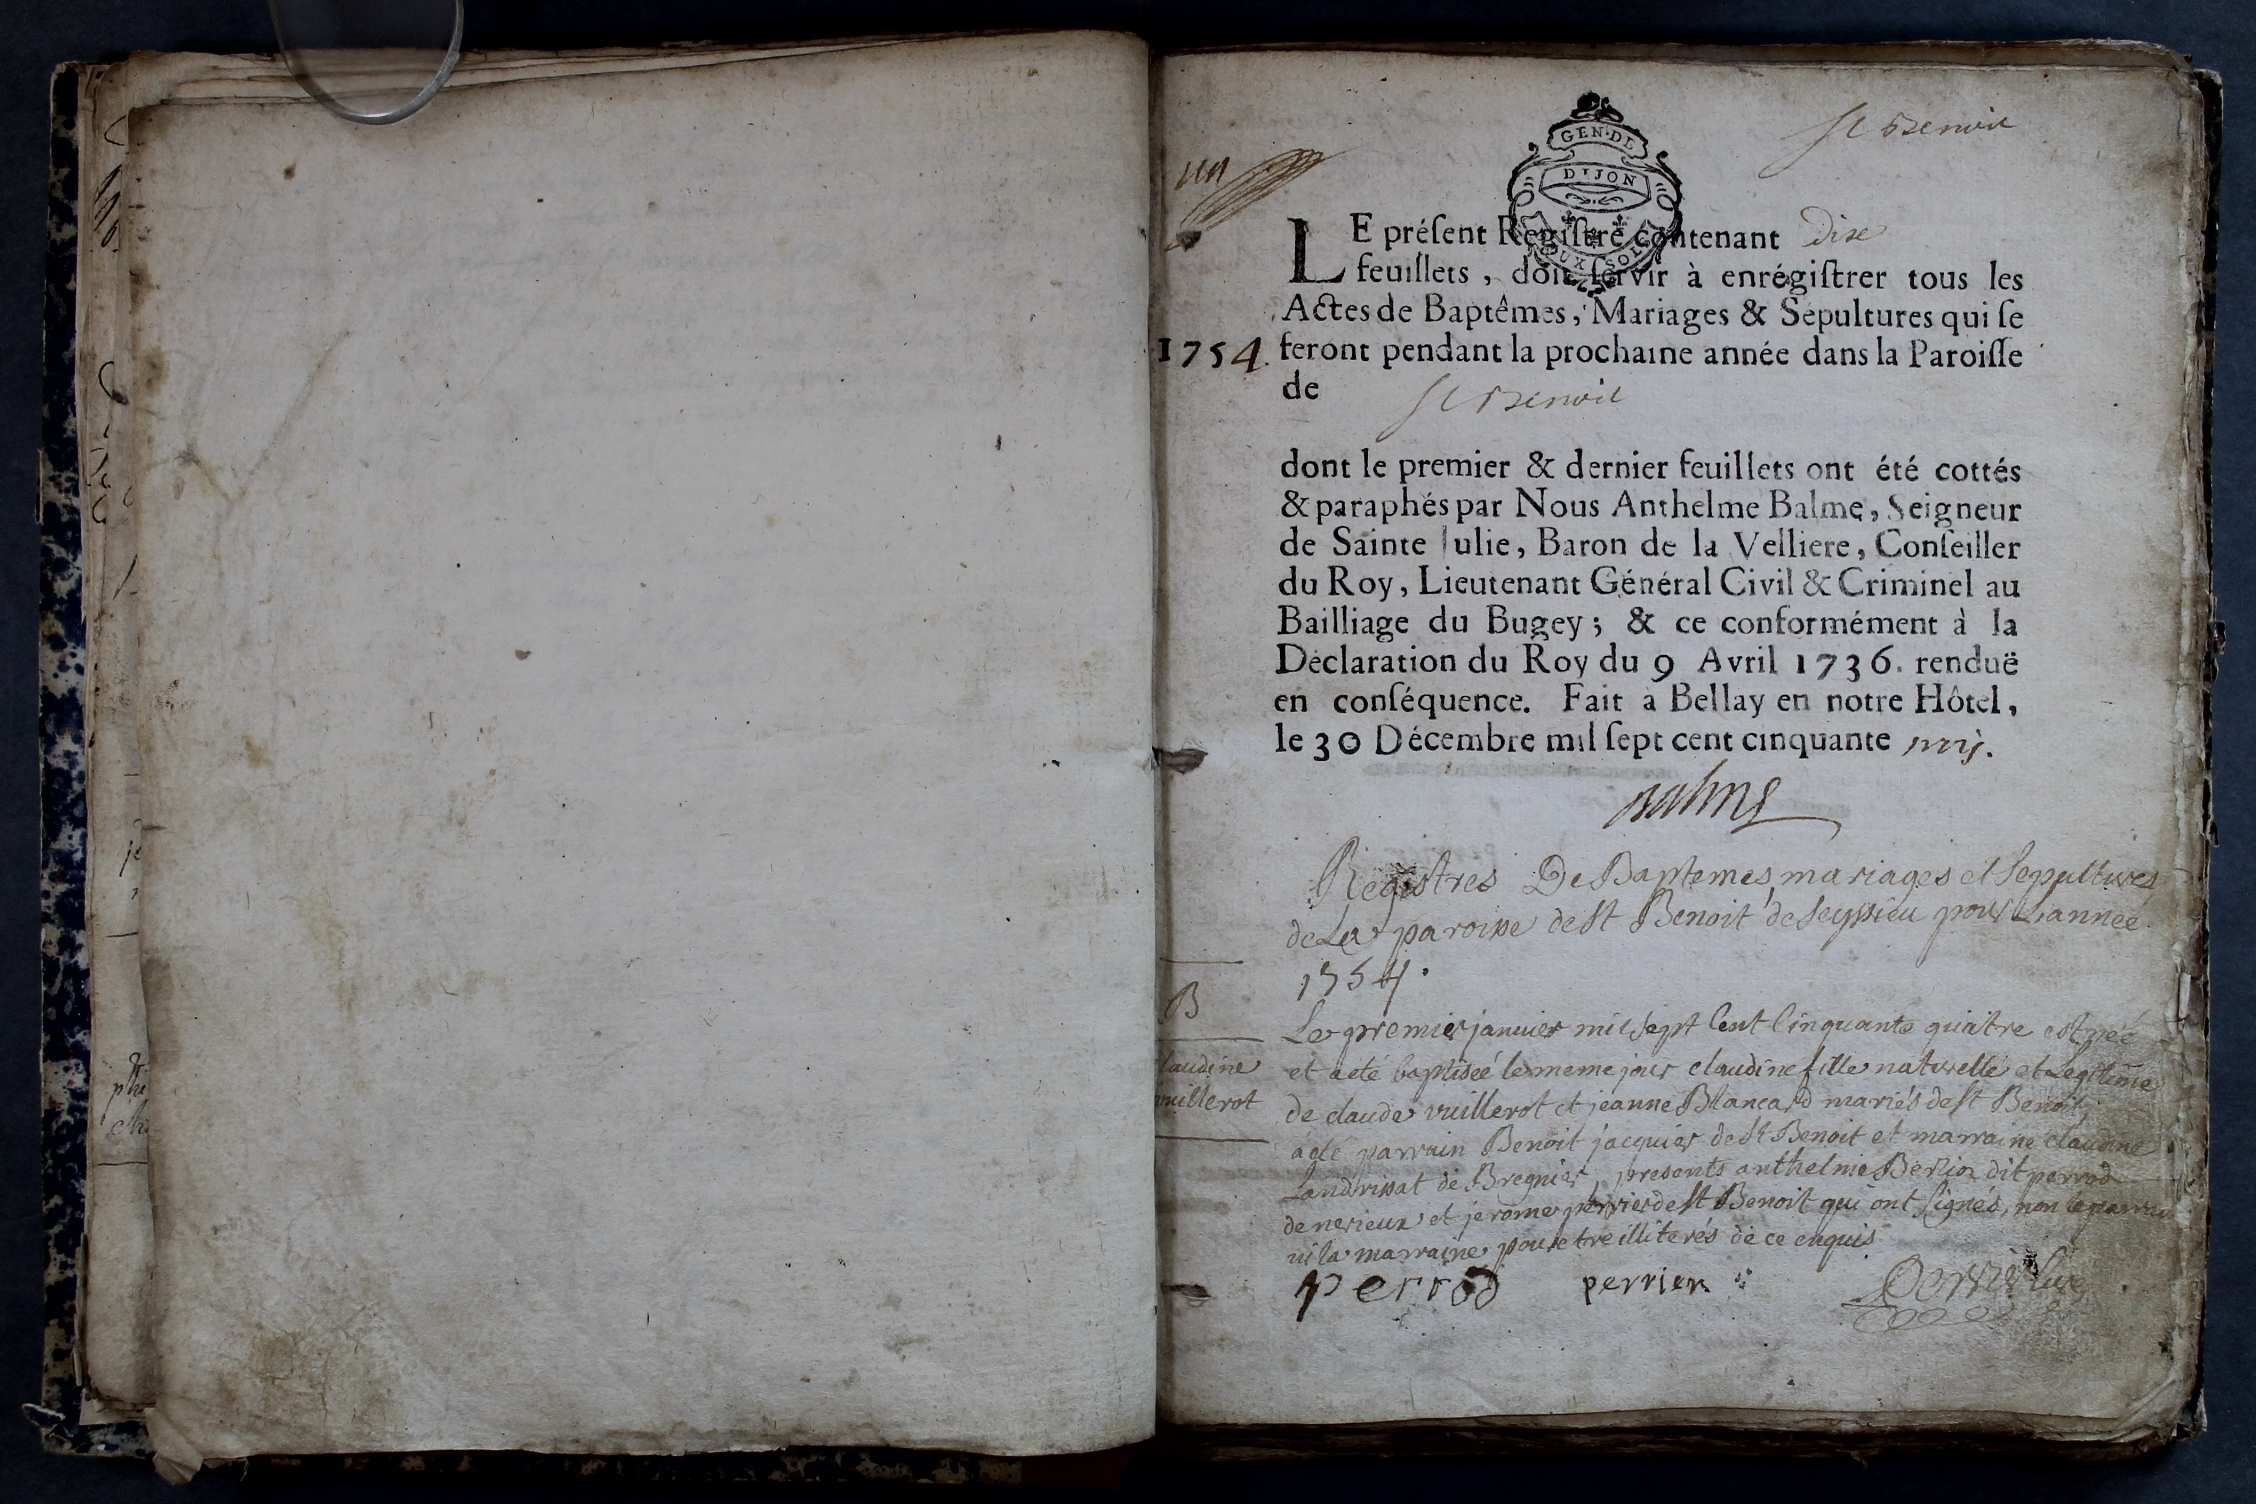 St Benoit
GEN. DE
DIJON
DEUX SOLS
un
LE préſent Regiſtre contenant Dix
feuillets, doit ſervir à enrégiſtrer tous les
Actes de Baptêmes, Mariages & Sépultures qui ſe
1754. feront pendant la prochaine année dans la Paroiſſe
de St Benoit
dont le premier & dernier feuillets ont été cottés
& paraphés par Nous Anthelme Balme, Seigneur
de Sainte Julie, Baron de la Velliere, Conſeiller
du Roy, Lieutenant Général Civil & Criminel au
Bailliage du Bugey; & ce conformément à la
Déclaration du Roy du 9 Avril 1736. renduë
en conſéquence. Fait à Bellay en notre Hôtel,
le 30 Décembre mil ſept cent cinquante trois.
Balme
Registres De Baptemes, mariages et Sepultures
de La paroisse de St Benoit de Seyssieu pour L'annee
1754.
B
Claudine
vuillerot
Le premier janvier mil sept Cent Cinquante quatre est née
et a eté baptisée le meme jour claudine fille naturelle et Legitime
de claude vuillerot et jeanne Blancard mariés de St Benoit
a eté parrain Benoit jacquier de St Benoit et marraine claudine
Landrissat de Bregnier, presents anthelme Berlioz dit perrod
de nerieux et jerome perrier de St Benoit qui ont Signés, non le parrain
ni la marraine pour etre illiterés de ce enquis
perrod perrier